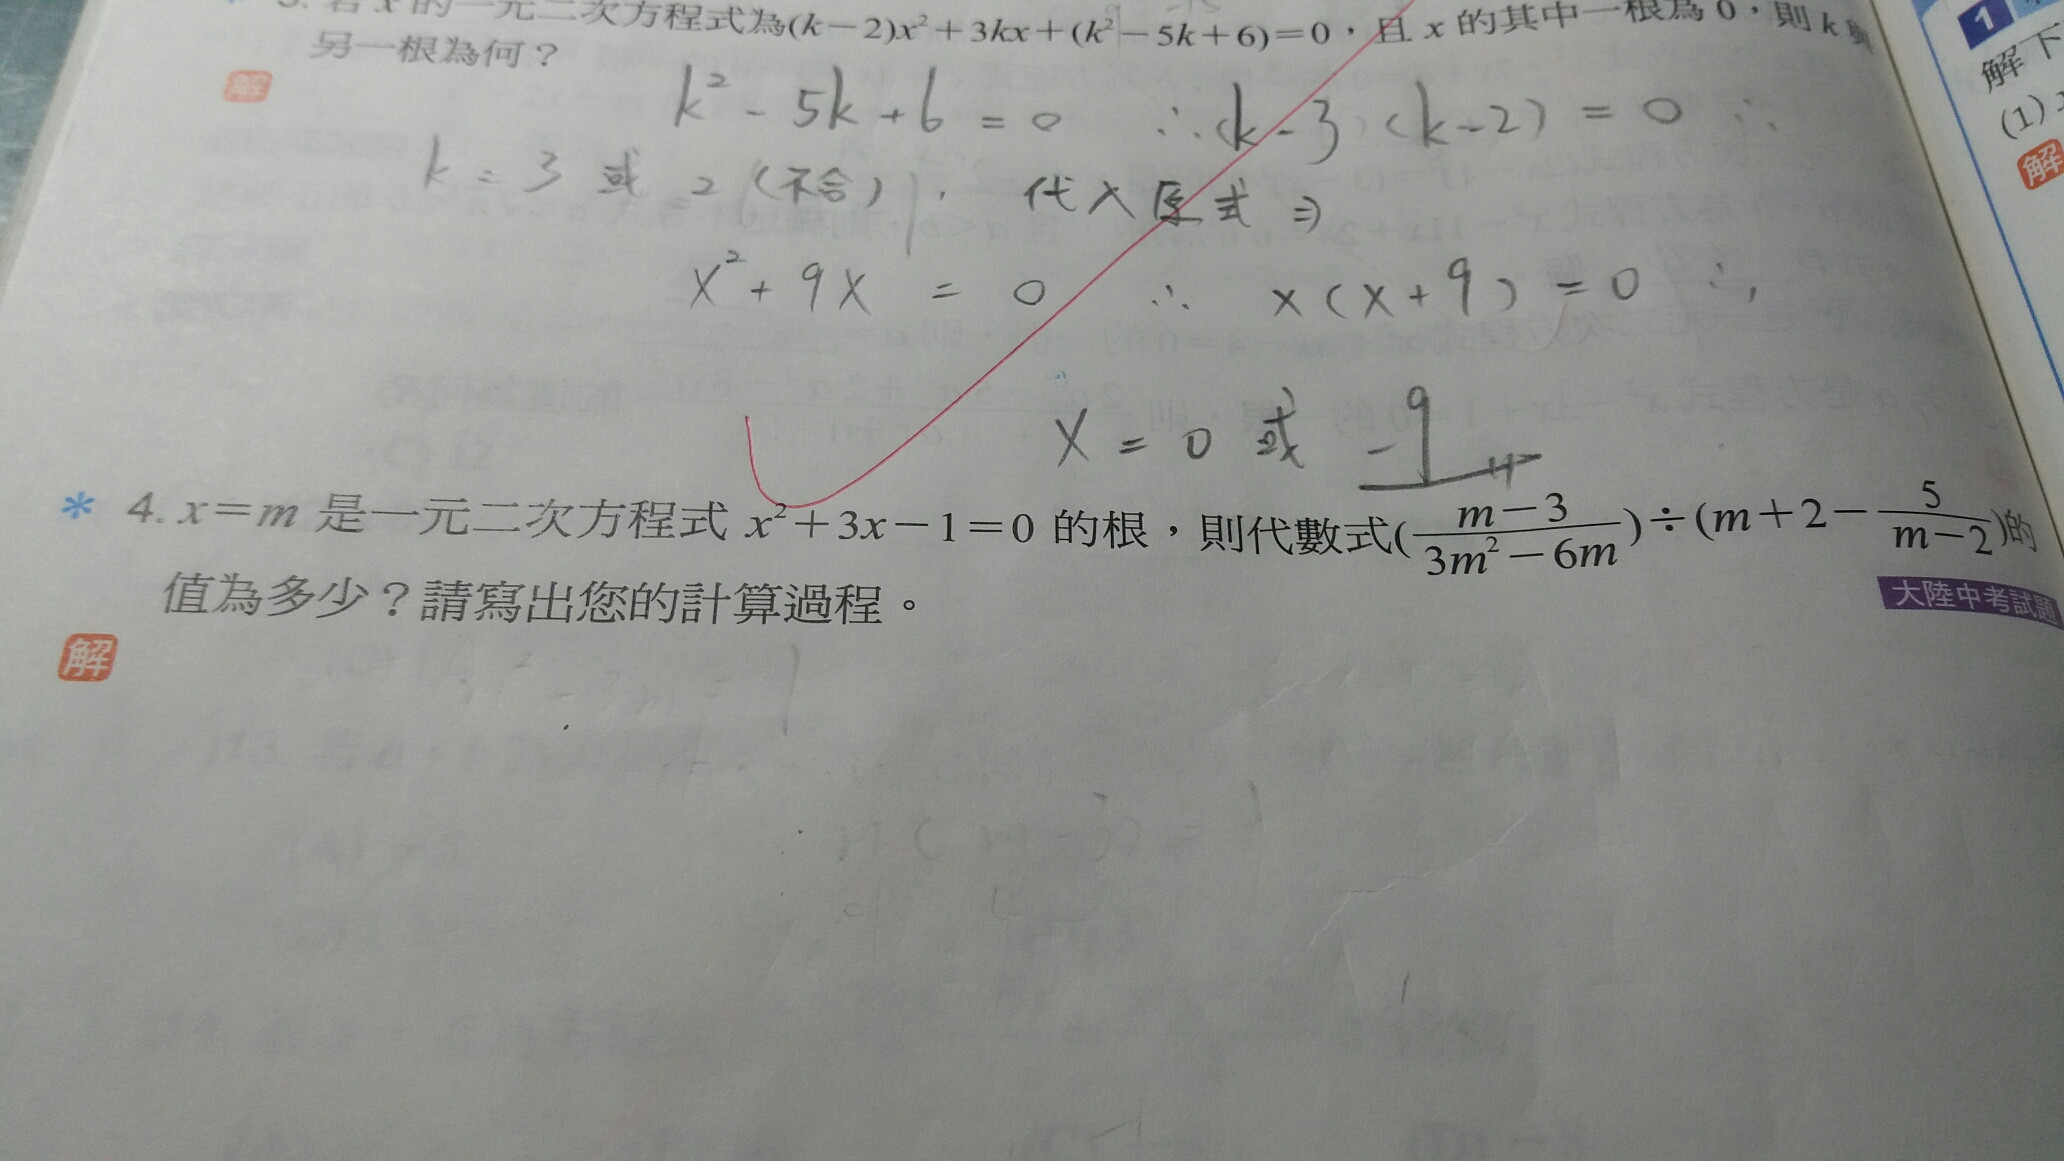 3. 若 x 的一元二次方程式為(k－2)x²＋3kx＋(k²－5k＋6)＝0，且 x 的其中一根為 0，則 k 與
另一根為何？
解
k² - 5k + 6 = 0 ∴ (k - 3) (k - 2) = 0 ∴
k = 3 或 2 (不合)， 代入原式 ⇒
x² + 9x = 0 ∴ x (x + 9) = 0 ∴,
x = 0 或 -9
* 4. x＝m 是一元二次方程式 x²＋3x－1＝0 的根，則代數式(\frac{m－3}{3m²－6m})÷(m＋2－\frac{5}{m－2})的
值為多少？請寫出您的計算過程。
大陸中考試題
解
1
解下
(1)
解